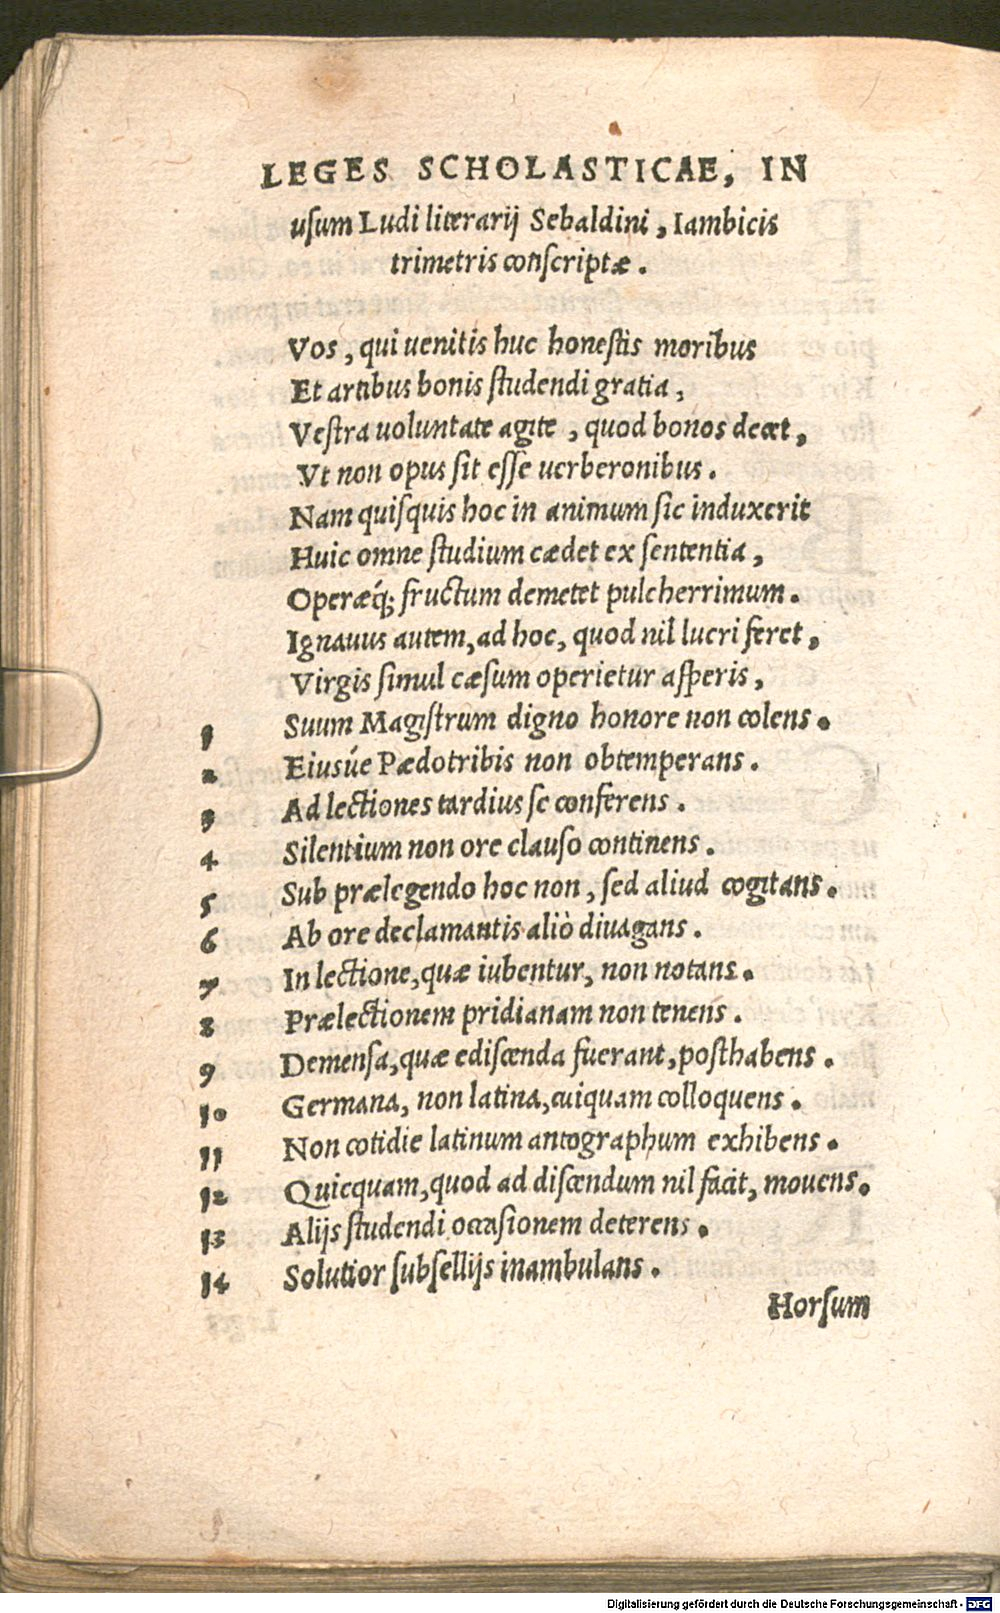 LEGES SCHOLASTICAE, IN
uſum Ludi literarij Sebaldini, Iambicis
trimetris conſcriptæ.
Vos, qui uenitis huc honeſtis moribus
Et artibus bonis ſtudendi gratia,
Veſtra uoluntate agite, quod bonos decet,
Vt non opus ſit eſſe uerberonibus.
Nam quiſquis hoc in animum ſic induxerit
Huic omne ſtudium cædet ex ſententia,
Operæq́; fructum demetet pulcherrimum.
Ignauus autem, ad hoc, quod nil lucri feret,
Virgis ſimul cæſum operietur aſperis,
1 Suum Magiſtrum digno honore non colens.
2 Eiusúe Pædotribis non obtemperans.
3 Ad lectiones tardius ſe conferens.
4 Silentium non ore clauſo continens.
5 Sub prælegendo hoc non, ſed aliud cogitans.
6 Ab ore declamantis aliò diuagans.
7 In lectione, quæ iubentur, non notans.
8 Prælectionem pridianam non tenens.
9 Demenſa, quæ ediſcenda fuerant, poſthabens.
10 Germana, non latina, cuiquam colloquens.
11 Non cotidie latinum antographum exhibens.
12 Quicquam, quod ad diſcendum nil facit, mouens.
13 Alijs ſtudendi occaſionem deterens.
14 Solutior ſubſellijs inambulans.
Horſum
Digitalisierung gefördert durch die Deutsche Forschungsgemeinschaft - DFG